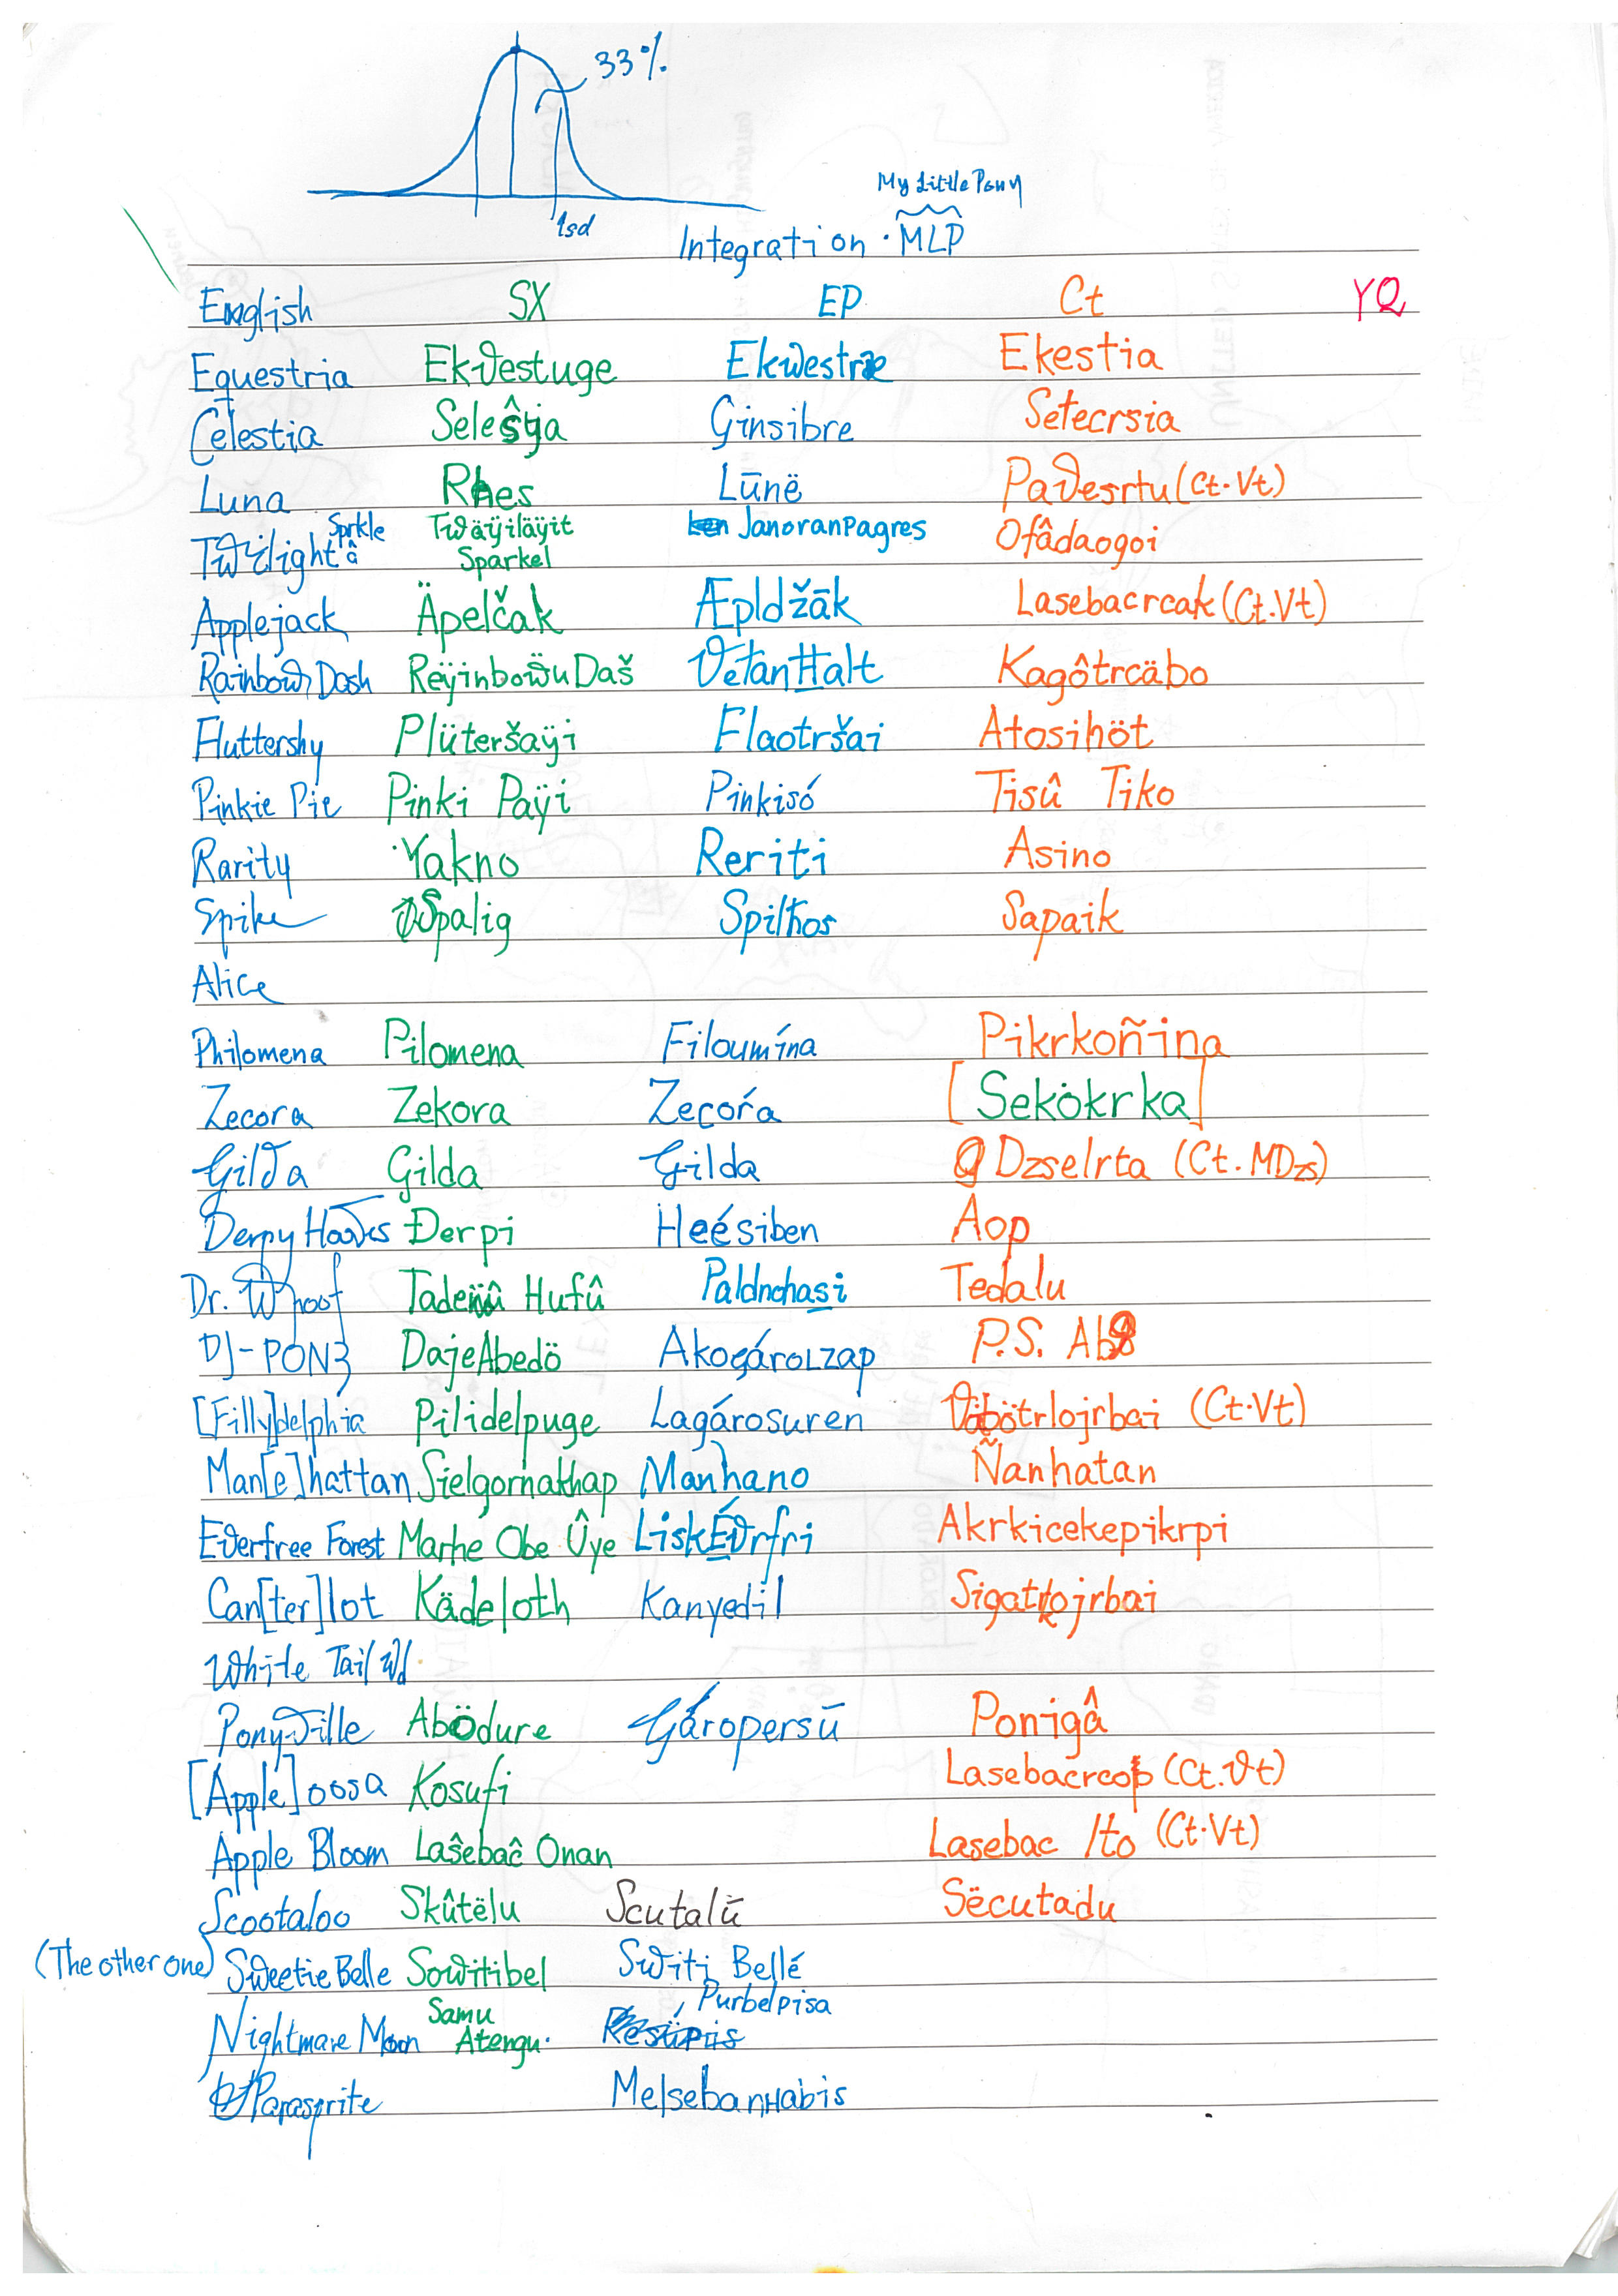 33%
1sd
My Little Pony
Integration · MLP
English SX EP Ct YQ
Equestria Ekvestuge Ekwestræ Ekestia
Celestia Seleŝÿa Ginsibre Setecrsia
Luna Rhes Lūnë Pavesrtu (Ct·Vt)
Twilight Sprkle Twäÿiläÿit Sparkel Janoranpagres Ofâdaogoi
Applejack Äpelčak Æpldžāk Lasebacrcak (Ct.Vt)
Rainbow Dash Reÿinbowu Daš VetanHalt Kagôtrcäbo
Fluttershy Plüteršaÿi Flaotršai Atosihöt
Pinkie Pie Pinki Paÿi Pinkisó Tisû Tiko
Rarity Yakno Reriti Asino
Spike Spalig Spilhos Sapaik
Alice
Philomena Pilomena Filoumína Pikrkoñina
Zecora Zekora Zecoŕa [Sekokrka]
Gilda Gilda Gilda Dzselrta (Ct.MDzs)
Derpy Hooves Đerpi Heésiben Aop
Dr. Whoof Hufû Paldnchasi Tedalu
DJ-PON3 DajeAbedö AkogároLzap P.S.
[Filly]delphia Pilidelpuge Lagárosuren (Ct·Vt)
Man[e]hattan Sielgornakhap Manhano Ñanhatan
Everfree Forest Marhe Obe Ûye LiskÉvrfri Akrkicekepikrpi
Can[ter]lot Kädeloth Kanyedil
White Tail Wd.
Ponyville Abödure Gáropersū Ponigâ
[Apple]oosa Kosufi (Ct.Vt)
Apple Bloom Laŝebaĉ Onan Lasebac Ito (Ct·Vt)
Scootaloo Skûtëlu Scutalū Sëcutadu
(The other one) Sweetie Belle Sowitibel Switi Bellé
Nightmare Moon Samu Atengu· Purbelpisa
Parasprite MelsebanHabis